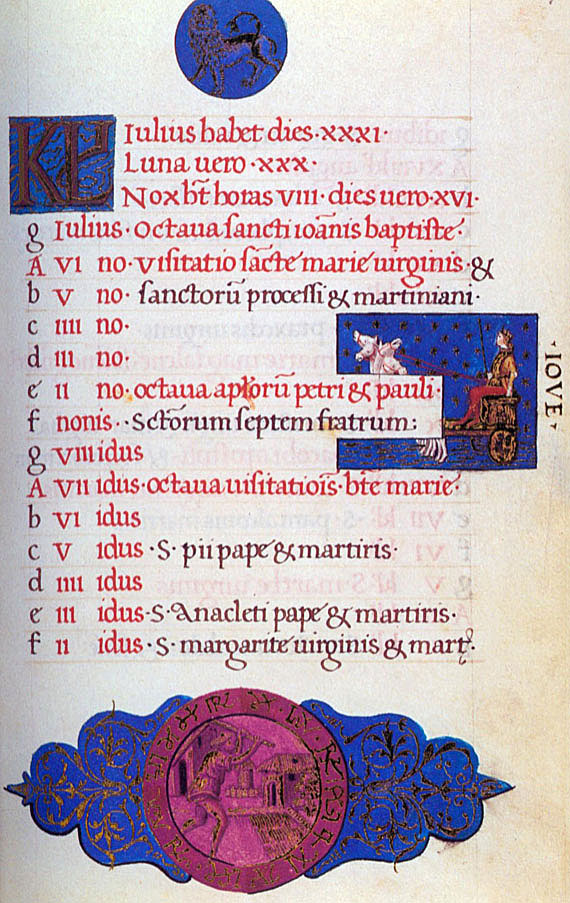 KL
Iulius habet dies·xxxi·
Luna uero·xxx·
Nox bt̄ horas viii· dies uero·xvi·
g Iulius· Octaua sancti ioānis baptiste·
A vi no·visitatio sāctę marię uirginis·&
b v no· sanctorū processi & martiniani·
c iiii no·
d iii no·
e ii no·octaua aplorū petri & pauli·
·IOVE·
f nonis··Sctorum septem fratrum:
g viii idus
A vii idus·octaua uisitatiōis btē marię·
b vi idus
c v idus·S· pii papę & martiris·
d iiii idus
e iii idus·S·Anacleti papę & martiris·
f ii idus·S· margaritę uirginis & mart·